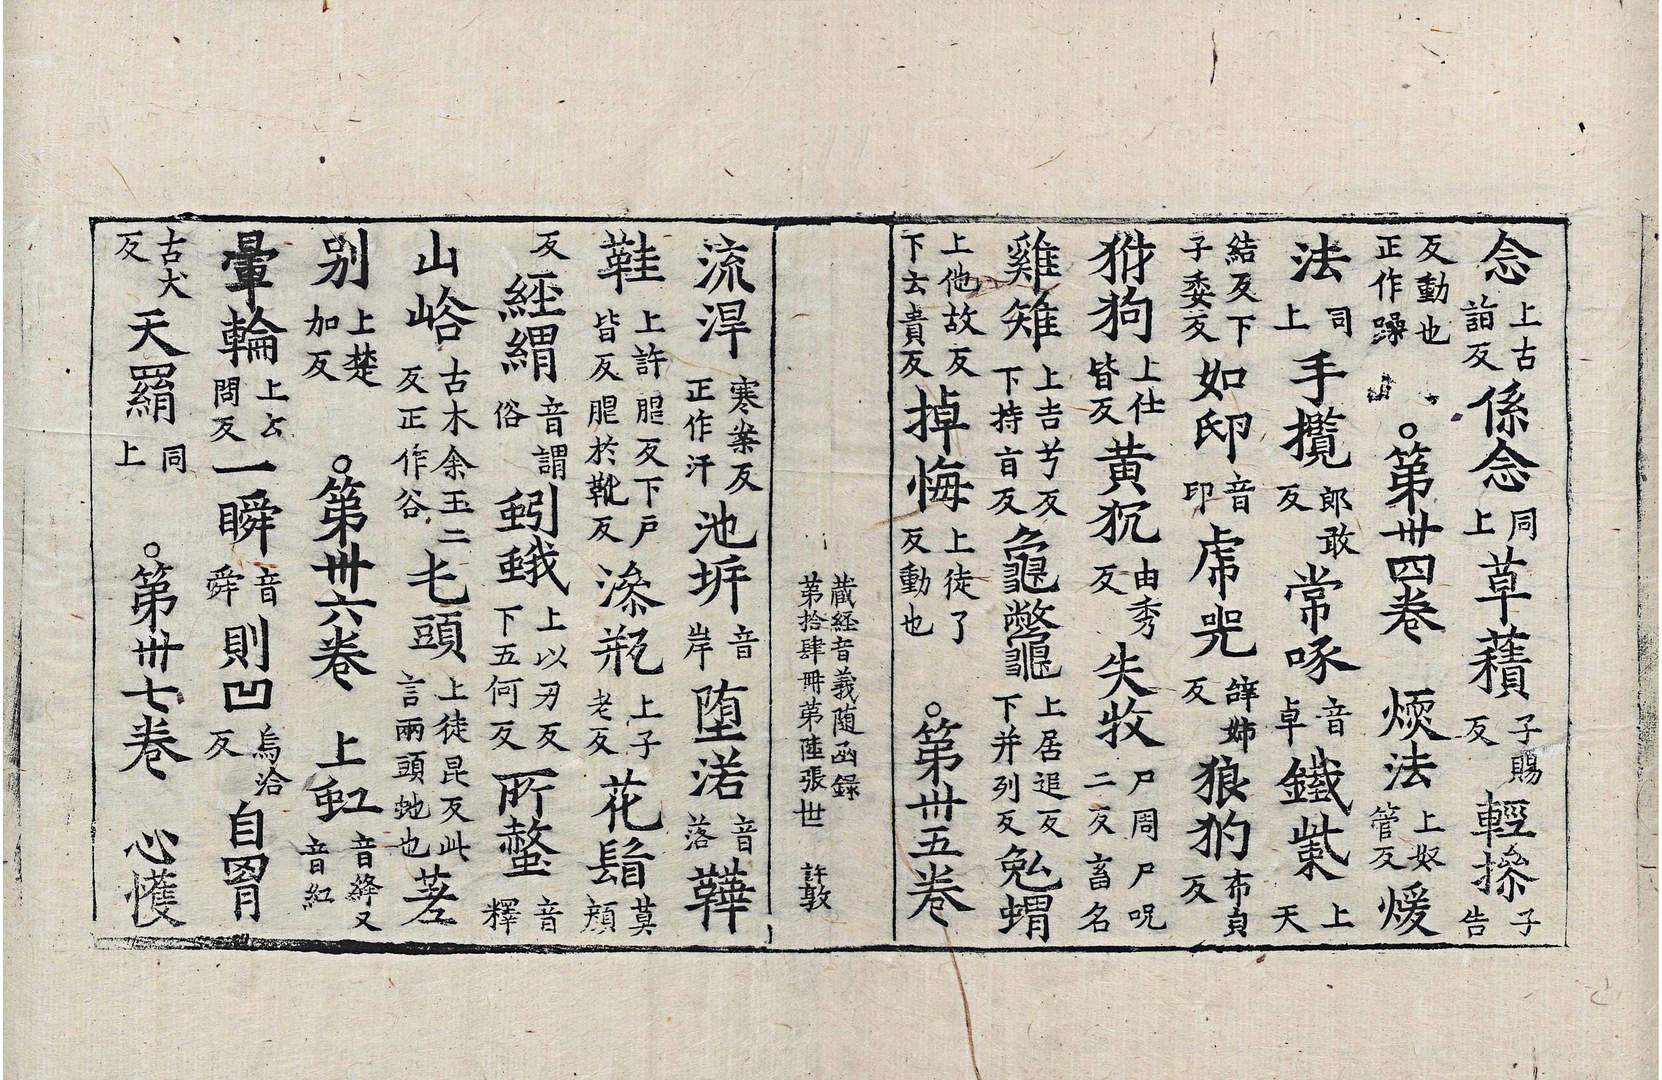 念上古詣反係念同上草蕵子賜反輕摻子告
反動也正作躁○第卅四卷㬉法上奴管反煖
法同上手攬郎敢反常啄音卓鐵紫上天
結反下子委反如𨚲音印虎兕辝姊反狼犳布㒵反
犲狗上仕皆反黄狖由秀反失牧尸周尸呪二反畜名
雞雉上吉兮反下持盲反龜鼈上居追反下并列反兔蝟
上他故反下云貴反掉悔上徒了反動也○第卅五卷
藏經音義随函録
第拾肆冊苐陸張世 許敦
流浫寒案反正作汗池㘸音岸堕渃音落鞾
鞋上許𦚢反下戸皆反𦚢於靴反漆瓶上子老反花鬘莫顔
反經緭音謂俗蚓蛾上以刃反下五何反所螫音釋
山峪古木余玉二反正作谷㐌頭上徒昆反此言兩頭虵也荖
别上楚加反○第卅六卷上虹音絳又音紅
暈輪上云問反一瞬音舜則凹烏洽反自罥
古犬反天羂同上○第卅七卷心㦜